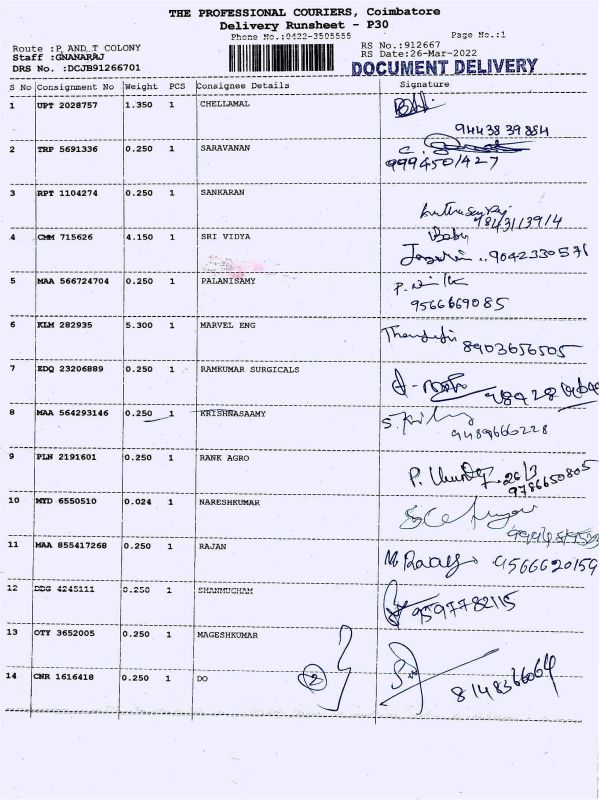 THE PROFESSIONAL COURIERS, Coimbatore
Delivery Runsheet - P30
Phone No.:0422-3505555
Page No.:1
Route :P AND T COLONY
RS No.:912667
Staff :GNANARAJ
RS Date:26-Mar-2022
DRS No. :DCJB91266701
DOCUMENT DELIVERY
S No Consignment No Weight PCS Consignee Details Signature
1 UPT 2028757 1.350 1 CHELLAMAL
9443839884
2 TRP 5691336 0.250 1 SARAVANAN
9994501427
3 RPT 1104274 0.250 1 SANKARAN
9843113914
4 CMM 715626 4.150 1 SRI VIDYA
9042330571
5 MAA 566724704 0.250 1 PALANISAMY
9566669085
6 KLM 282935 5.300 1 MARVEL ENG
8903656505
7 EDQ 23206889 0.250 1 RAMKUMAR SURGICALS
8 MAA 564293146 0.250 1 KRISHNASAAMY
9489666228
9 PLN 2191601 0.250 1 RANK AGRO
26/3
9786650805
10 MYD 6550510 0.024 1 NARESHKUMAR
11 MAA 855417268 0.250 1 RAJAN
9566620159
12 DDG 4245111 0.250 1 SHANMUGHAM
9597782115
13 OTY 3652005 0.250 1 MAGESHKUMAR
14 CNR 1616418 0.250 1 DO
2
8148366064